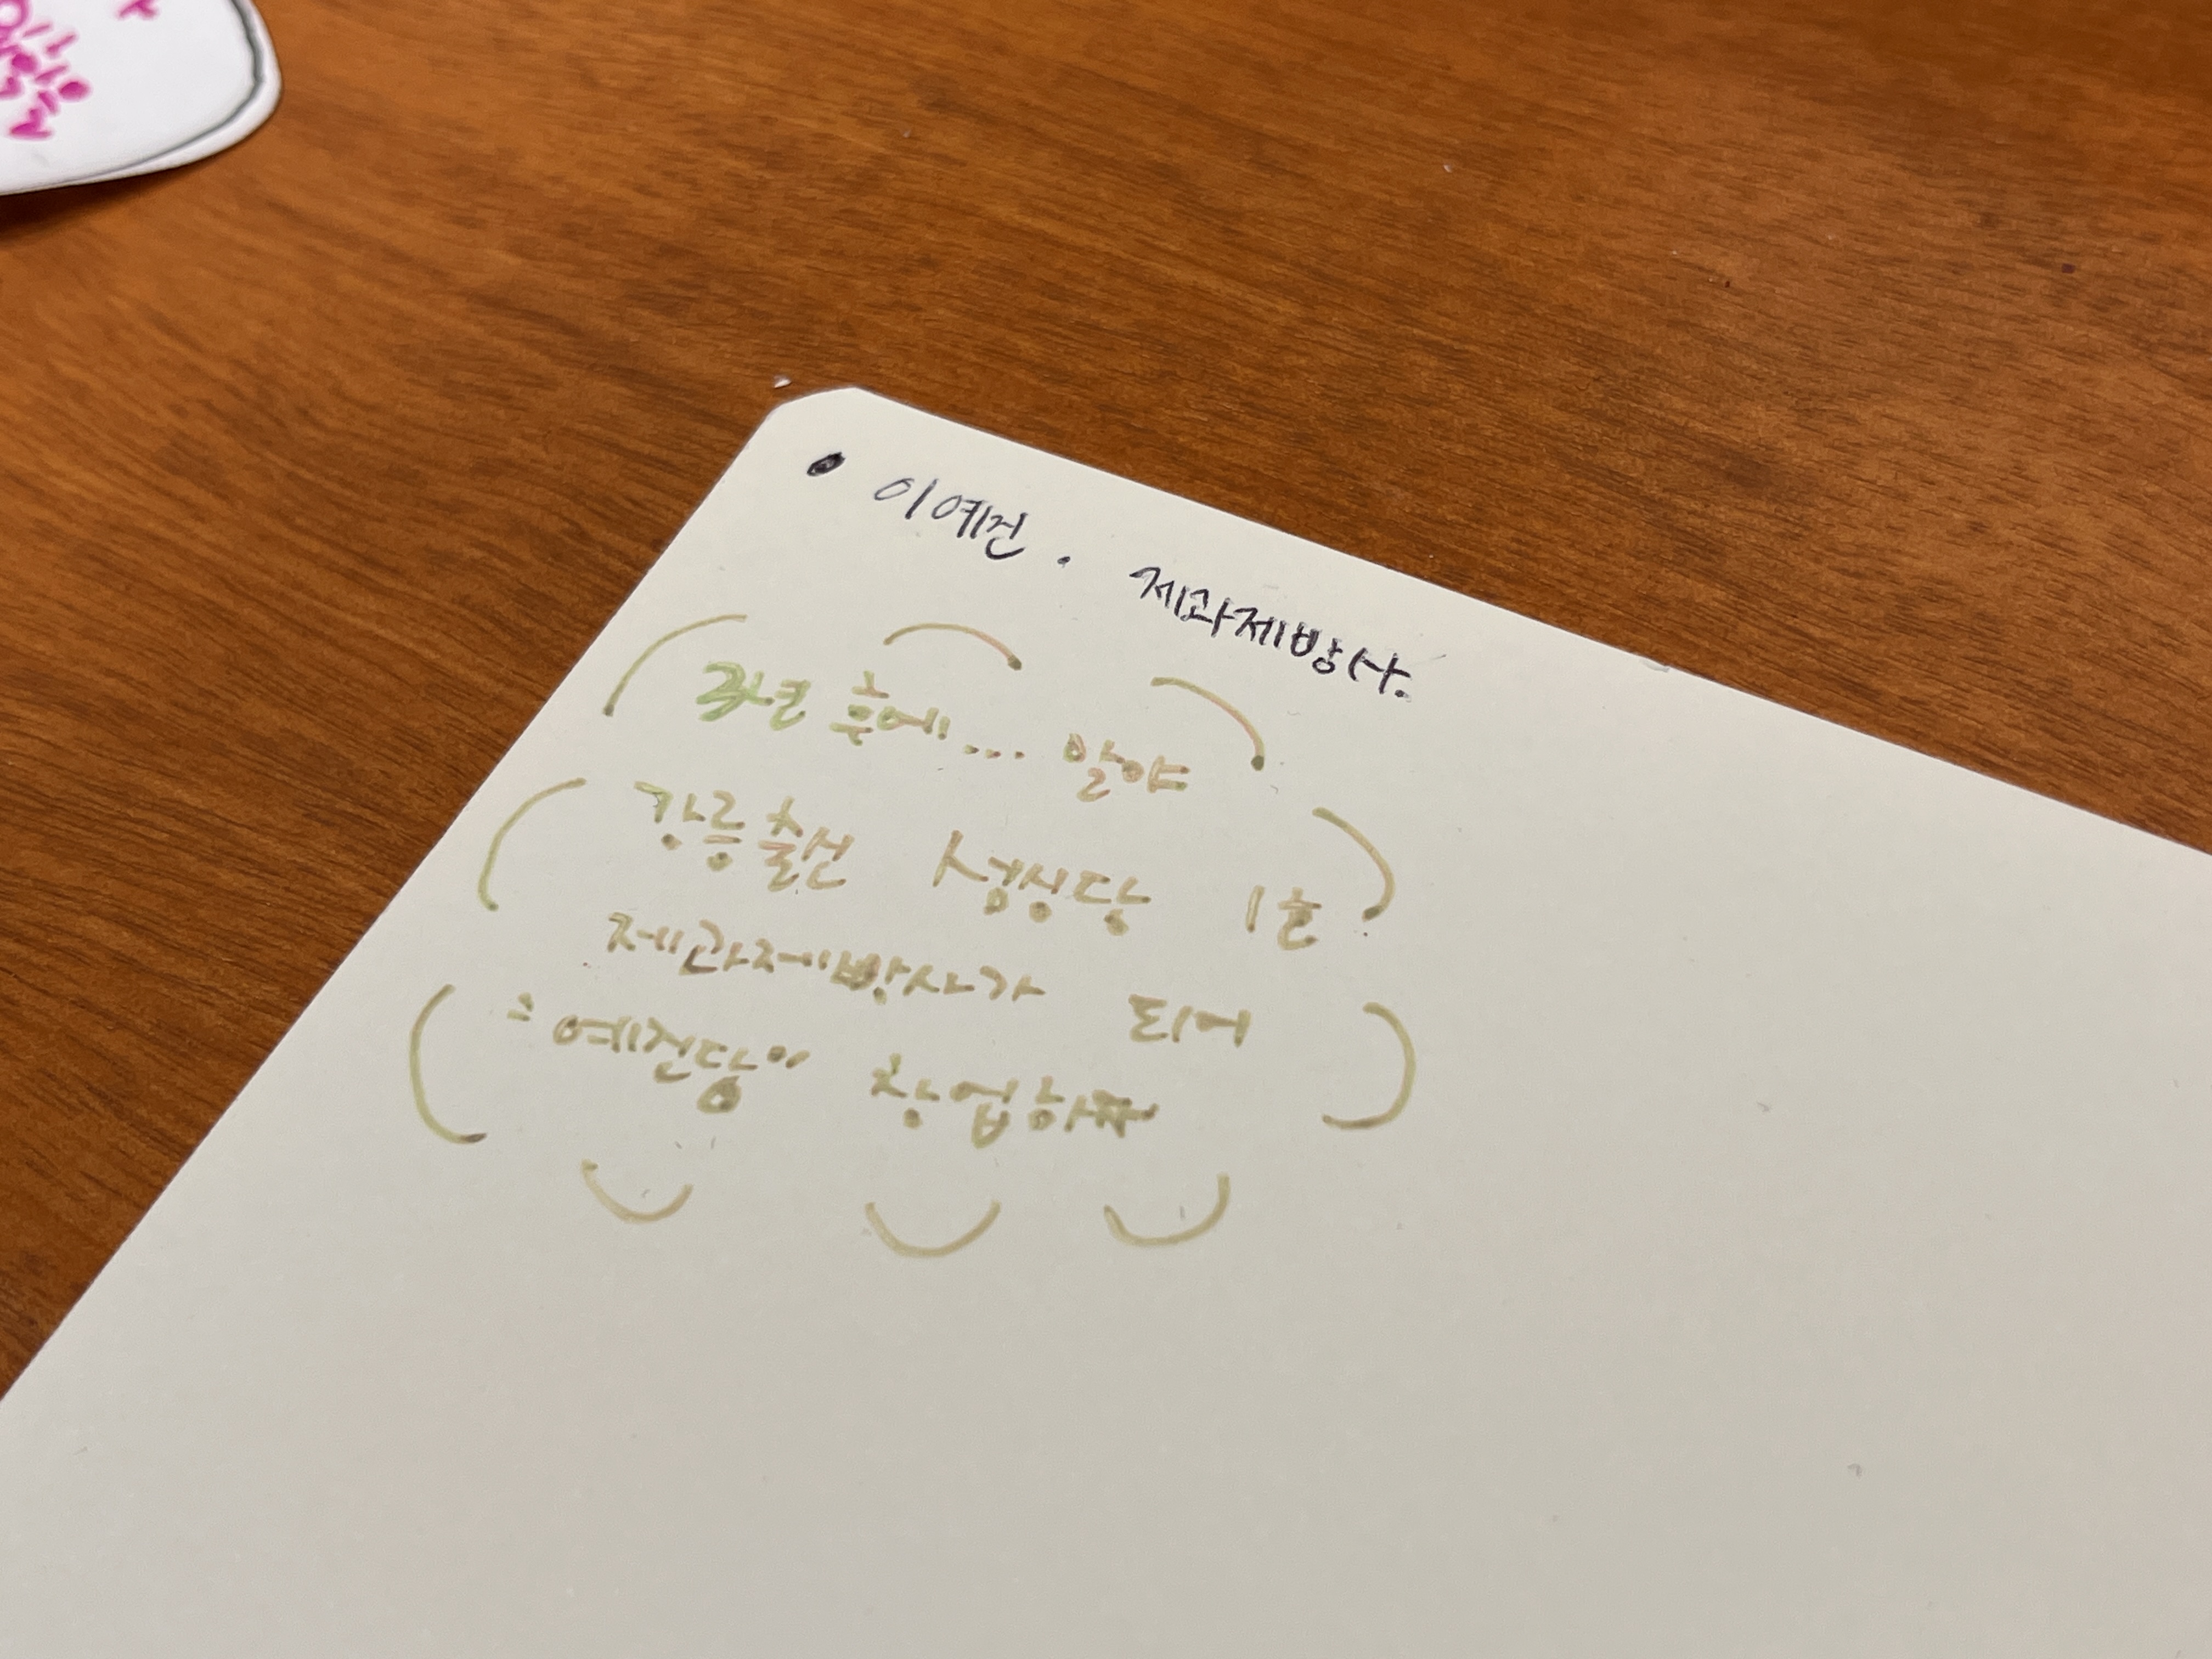 • 이예건 · 제과제빵사.
3년 후에... 말야
강릉출신 성심당 1호
제과제빵사가 되어
"예건당" 창업하자